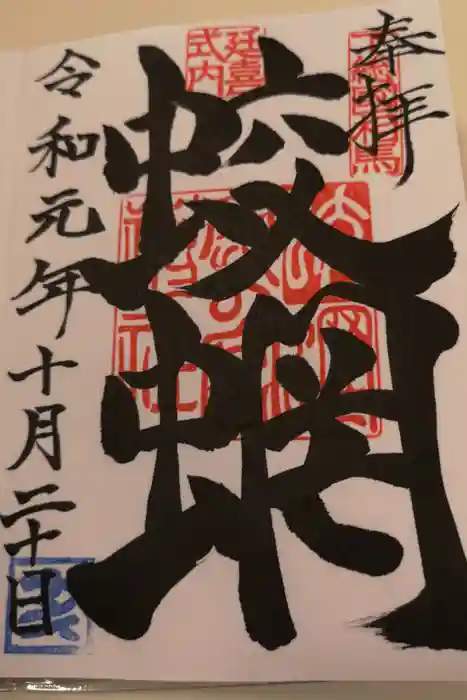 奉拝
延喜
式内
蛟蝄
令和元年十月二十日